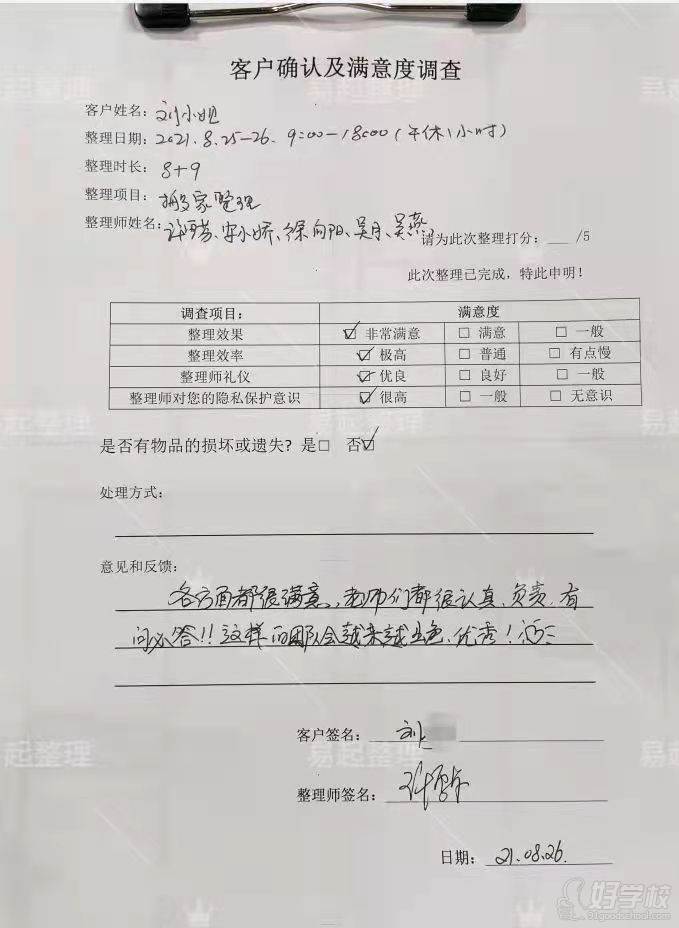 客户确认及满意度调查
客户姓名：刘小姐
整理日期：2021.8.25-26. 9:00-18:00（午休1小时）
整理时长：8+9
整理项目：搬家整理
整理师姓名：宋小娇、徐向阳、吴月、吴燕
请为此次整理打分：___/5
此次整理已完成，特此申明！
调查项目： 满意度
整理效果 ☑ 非常满意 □ 满意 □ 一般
整理效率 ☑ 极高 □ 普通 □ 有点慢
整理师礼仪 ☑ 优良 □ 良好 □ 一般
整理师对您的隐私保护意识 ☑ 很高 □ 一般 □ 无意识
是否有物品的损坏或遗失？是□ 否☑
处理方式：
意见和反馈：
各方面都很满意，老师们都很认真、负责、有
问必答!!这样的团队会越来越出色、优秀！
客户签名：刘
整理师签名：
日期：21.08.26.
易起整理
起整理
易起整理
易起整理
好学校
91goodschool.com